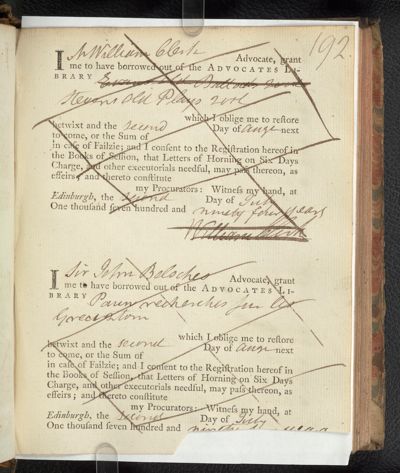 192.
I Mr William Clerk Advocate, grant
me to have borrowed out of the ADVOCATES LI-
BRARY Evans's Old Ballads
Stevens Old Plays
which I oblige me to restore
betwixt and the second Day of Augt next
to come, or the Sum of
in case of Failzie; and I consent to the Registration hereof in
the Books of Session, that Letters of Horning on Six Days
Charge, and other executorials needful, may pass thereon, as
effeirs; and thereto constitute
my Procurators: Witness my hand, at
Edinburgh, the second Day of July
One thousand seven hundred and ninety four years
William Clerk
I Sir John Belsches Advocate, grant
me to have borrowed out of the ADVOCATES LI-
BRARY Pauw recherches sur les
Grecs
which I oblige me to restore
betwixt and the second Day of Augt next
to come, or the Sum of
in case of Failzie; and I consent to the Registration hereof in
the Books of Session, that Letters of Horning on Six Days
Charge, and other executorials needful, may pass thereon, as
effeirs; and thereto constitute
my Procurators: Witness my hand, at
Edinburgh, the second Day of July
One thousand seven hundred and